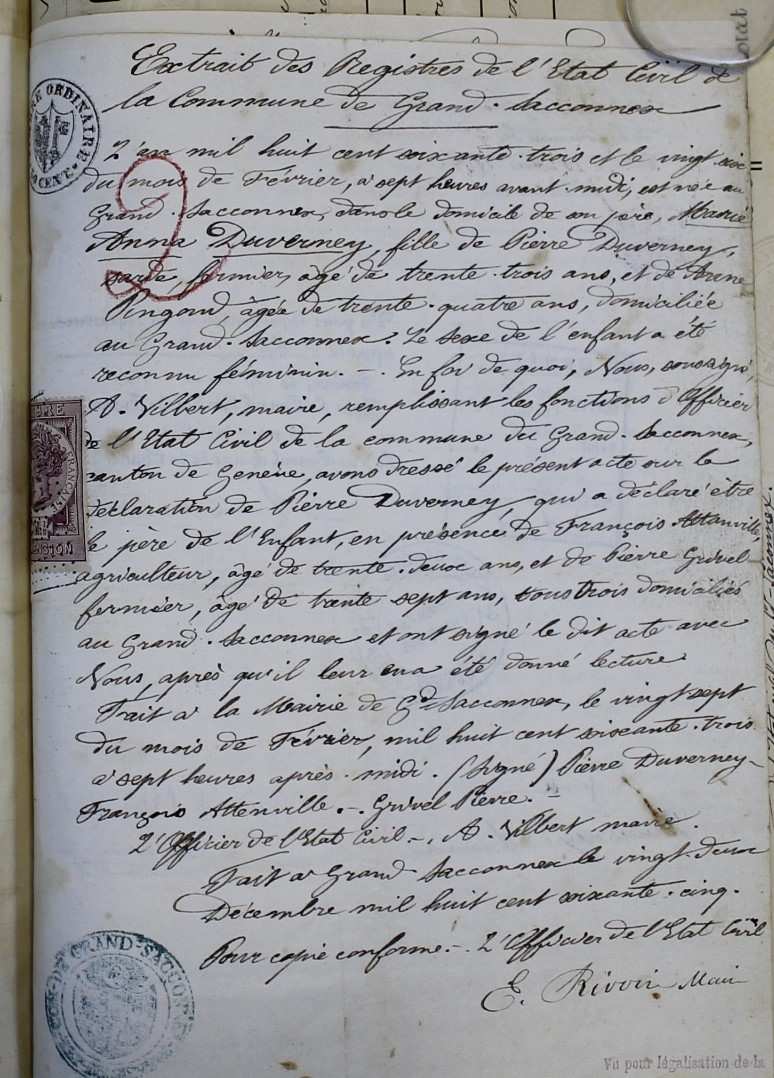 Extrait des Registres de l'Etat Civil de
la Commune de Grand-Sacconnex
L'an mil huit cent soixante-trois et le vingt six
du mois de Février, à sept heures avant midi, est née au
Grand-Sacconnex, dans le domicile de son père, Marie
Anna Duverney, fille de Pierre Duverney,
sarde, fermier, âgé de trente-trois ans, et de Anne
Pingoud, âgée de trente-quatre ans, domiciliée
au Grand-Sacconnex. Le sexe de l'enfant a été
reconnu féminin. -. En foi de quoi, Nous, soussigné,
A. Vilbert, maire, remplissant les fonctions d'Officier
de l'Etat Civil de la commune du Grand-Sacconnex,
canton de Genève, avons dressé le présent acte sur la
déclaration de Pierre Duverney, qui a déclaré être
le père de l'Enfant, en présence de François Attenville
agriculteur, âgé de trente-deux ans, et de Pierre Grivel
fermier, âgé de trente sept ans, tous trois domiciliés
au Grand-Sacconnex et ont signé le dit acte avec
Nous, après qu'il leur en a été donné lecture
Fait à la Mairie de Gd Sacconnex, le vingt sept
du mois de Février, mil huit cent soixante-trois
à sept heures après-midi. (Signé) Pierre Duverney-
François Attenville. -. Grivel Pierre. -
L'Officier de l'Etat Civil -. A. Vilbert maire.
Fait à Grand-Sacconnex le vingt-deux
Décembre mil huit cent soixante-cinq.
Pour copie conforme. -. L'Officier de l'Etat Civil
E. Rivoir Maire
ORDINAIRE
COM. DE GRAND-SACCONNEX
Vu pour légalisation de la